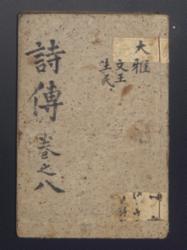 大雅
文王
生民
詩傳 卷之八